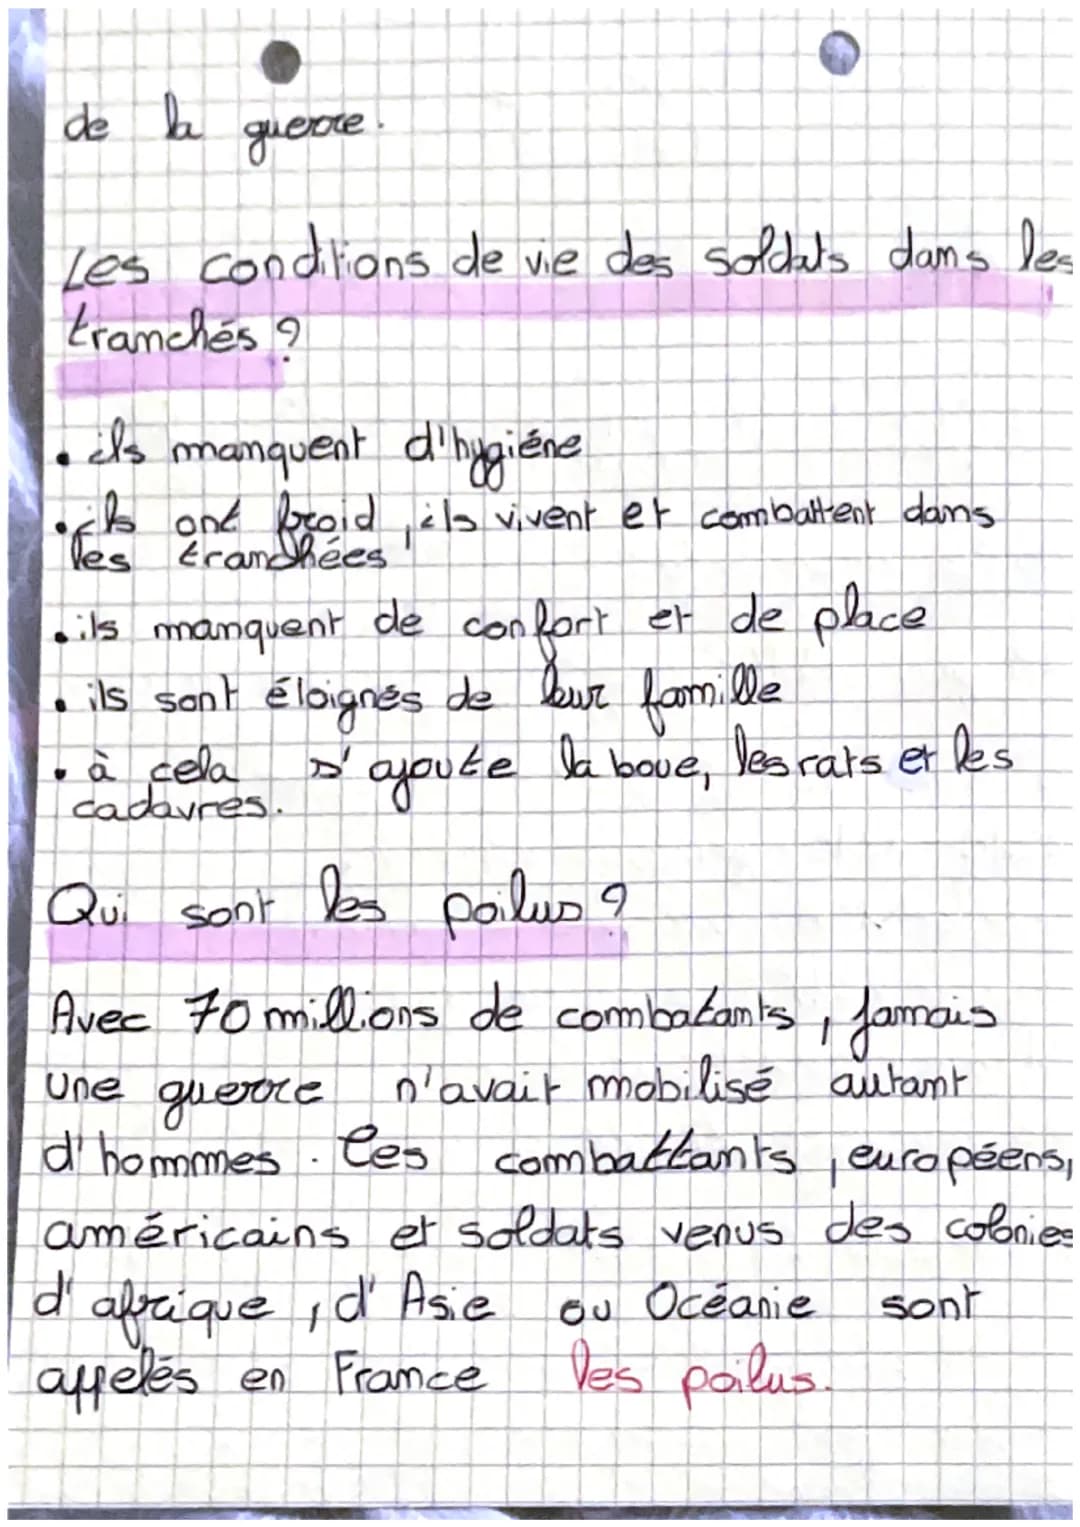 de la guerre.
Les conditions de vie des soldats dans les
tranchés ?
• ils manquent d'hygiéne
• ils ont froid, ils vivent et combattent dans
les tranchées
• ils manquent de confort et de place
• ils sont éloignés de leur famille
• à cela s'ajoute la boue, les rats et les
cadavres.
Qui sont les poilus ?
Avec 70 millions de combatants, jamais
une guerre n'avait mobilisé autant
d'hommes. Ces combattants, européens,
américains et soldats venus des colonies
d'afrique, d'Asie ou Océanie sont
appelés en France les poilus.